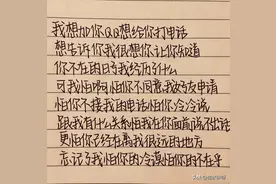 我想加你QQ想给你打电话
想告诉你我很想你让你知道
你不在的日子我经历了什么
可我怕啊怕你不同意我好友申请
怕你不接我的电话怕你冷冷说
跟我有什么关系怕我在你面前说不出话
更怕你已经招离我很远的地方
忘记了我怕你的冷漠怕你的不在乎